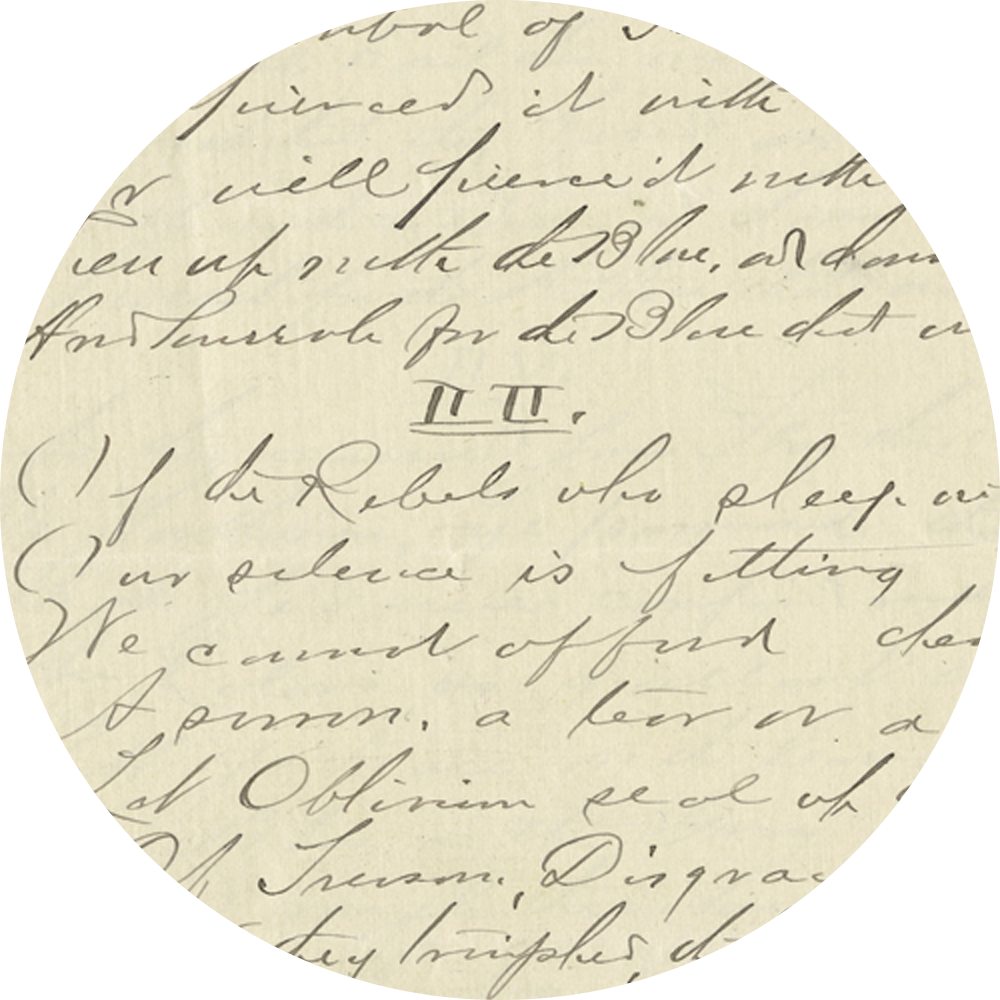 of
pierced it with
will pierce it with
up with the Blue, and down
And Hurrah for the Blue that
III.
Of the Rebels who sleep
Our silence is fitting
We cannot afford them
A sermon, a tear or a
Let Oblivion seal up
Of Treason, Disgrac
they triumphed,